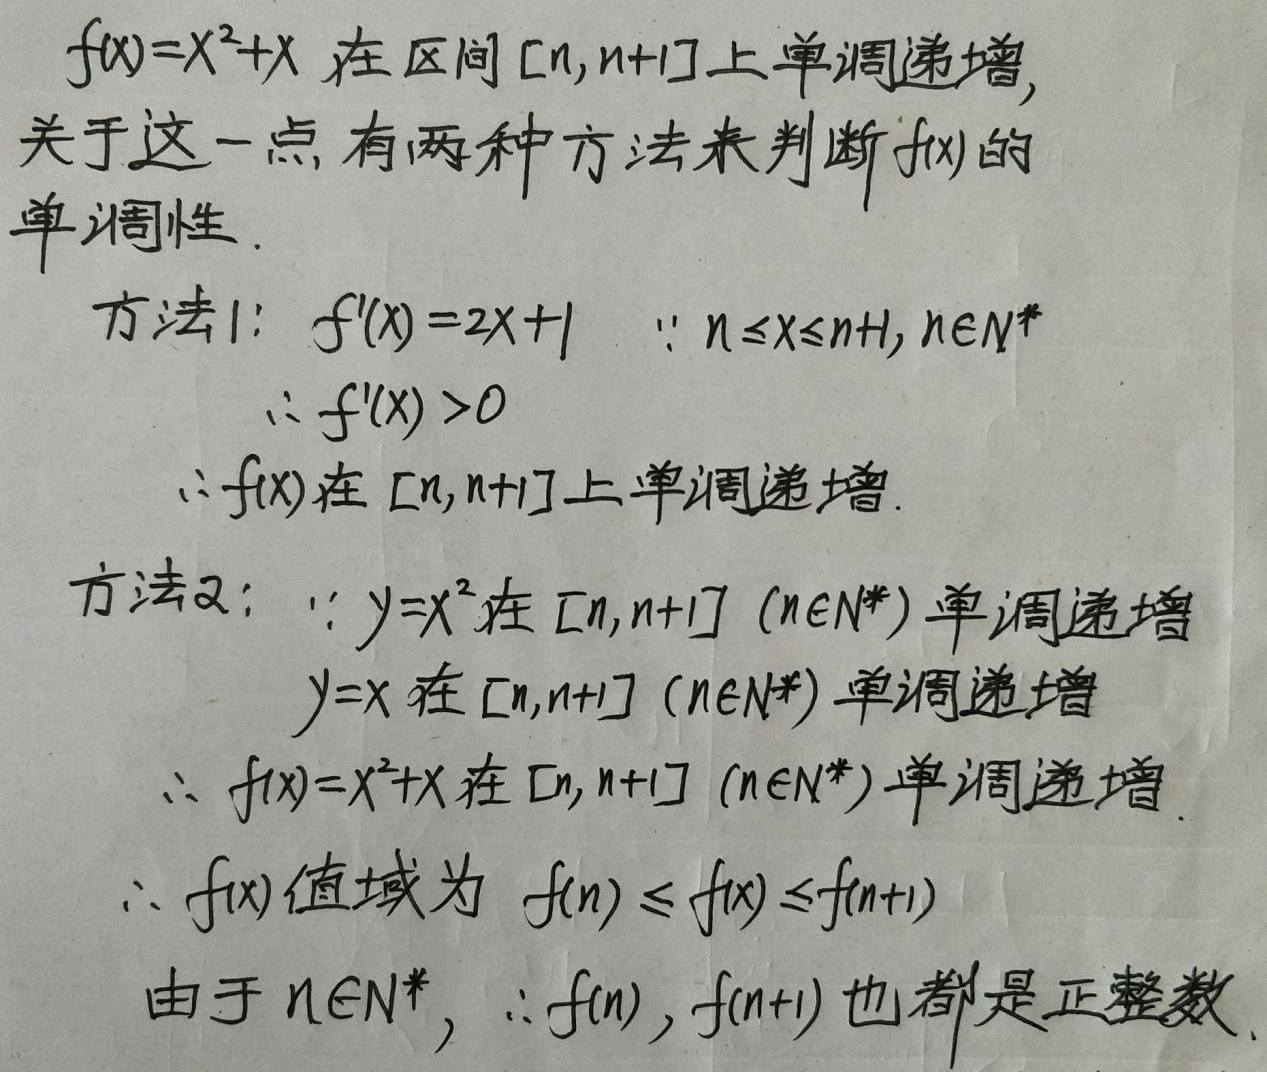 f(x)=x²+x 在区间[n,n+1]上单调递增,
关于这一点有两种方法来判断f(x)的
单调性.
方法1: f'(x)=2x+1 ∵ n≤x≤n+1, n∈N*
∴ f'(x)>0
∴ f(x)在[n,n+1]上单调递增.
方法2: ∵ y=x²在[n,n+1] (n∈N*) 单调递增
y=x 在[n,n+1] (n∈N*) 单调递增
∴ f(x)=x²+x 在[n,n+1] (n∈N*) 单调递增.
∴ f(x)值域为 f(n)≤f(x)≤f(n+1)
由于 n∈N*, ∴ f(n), f(n+1) 也都是正整数.